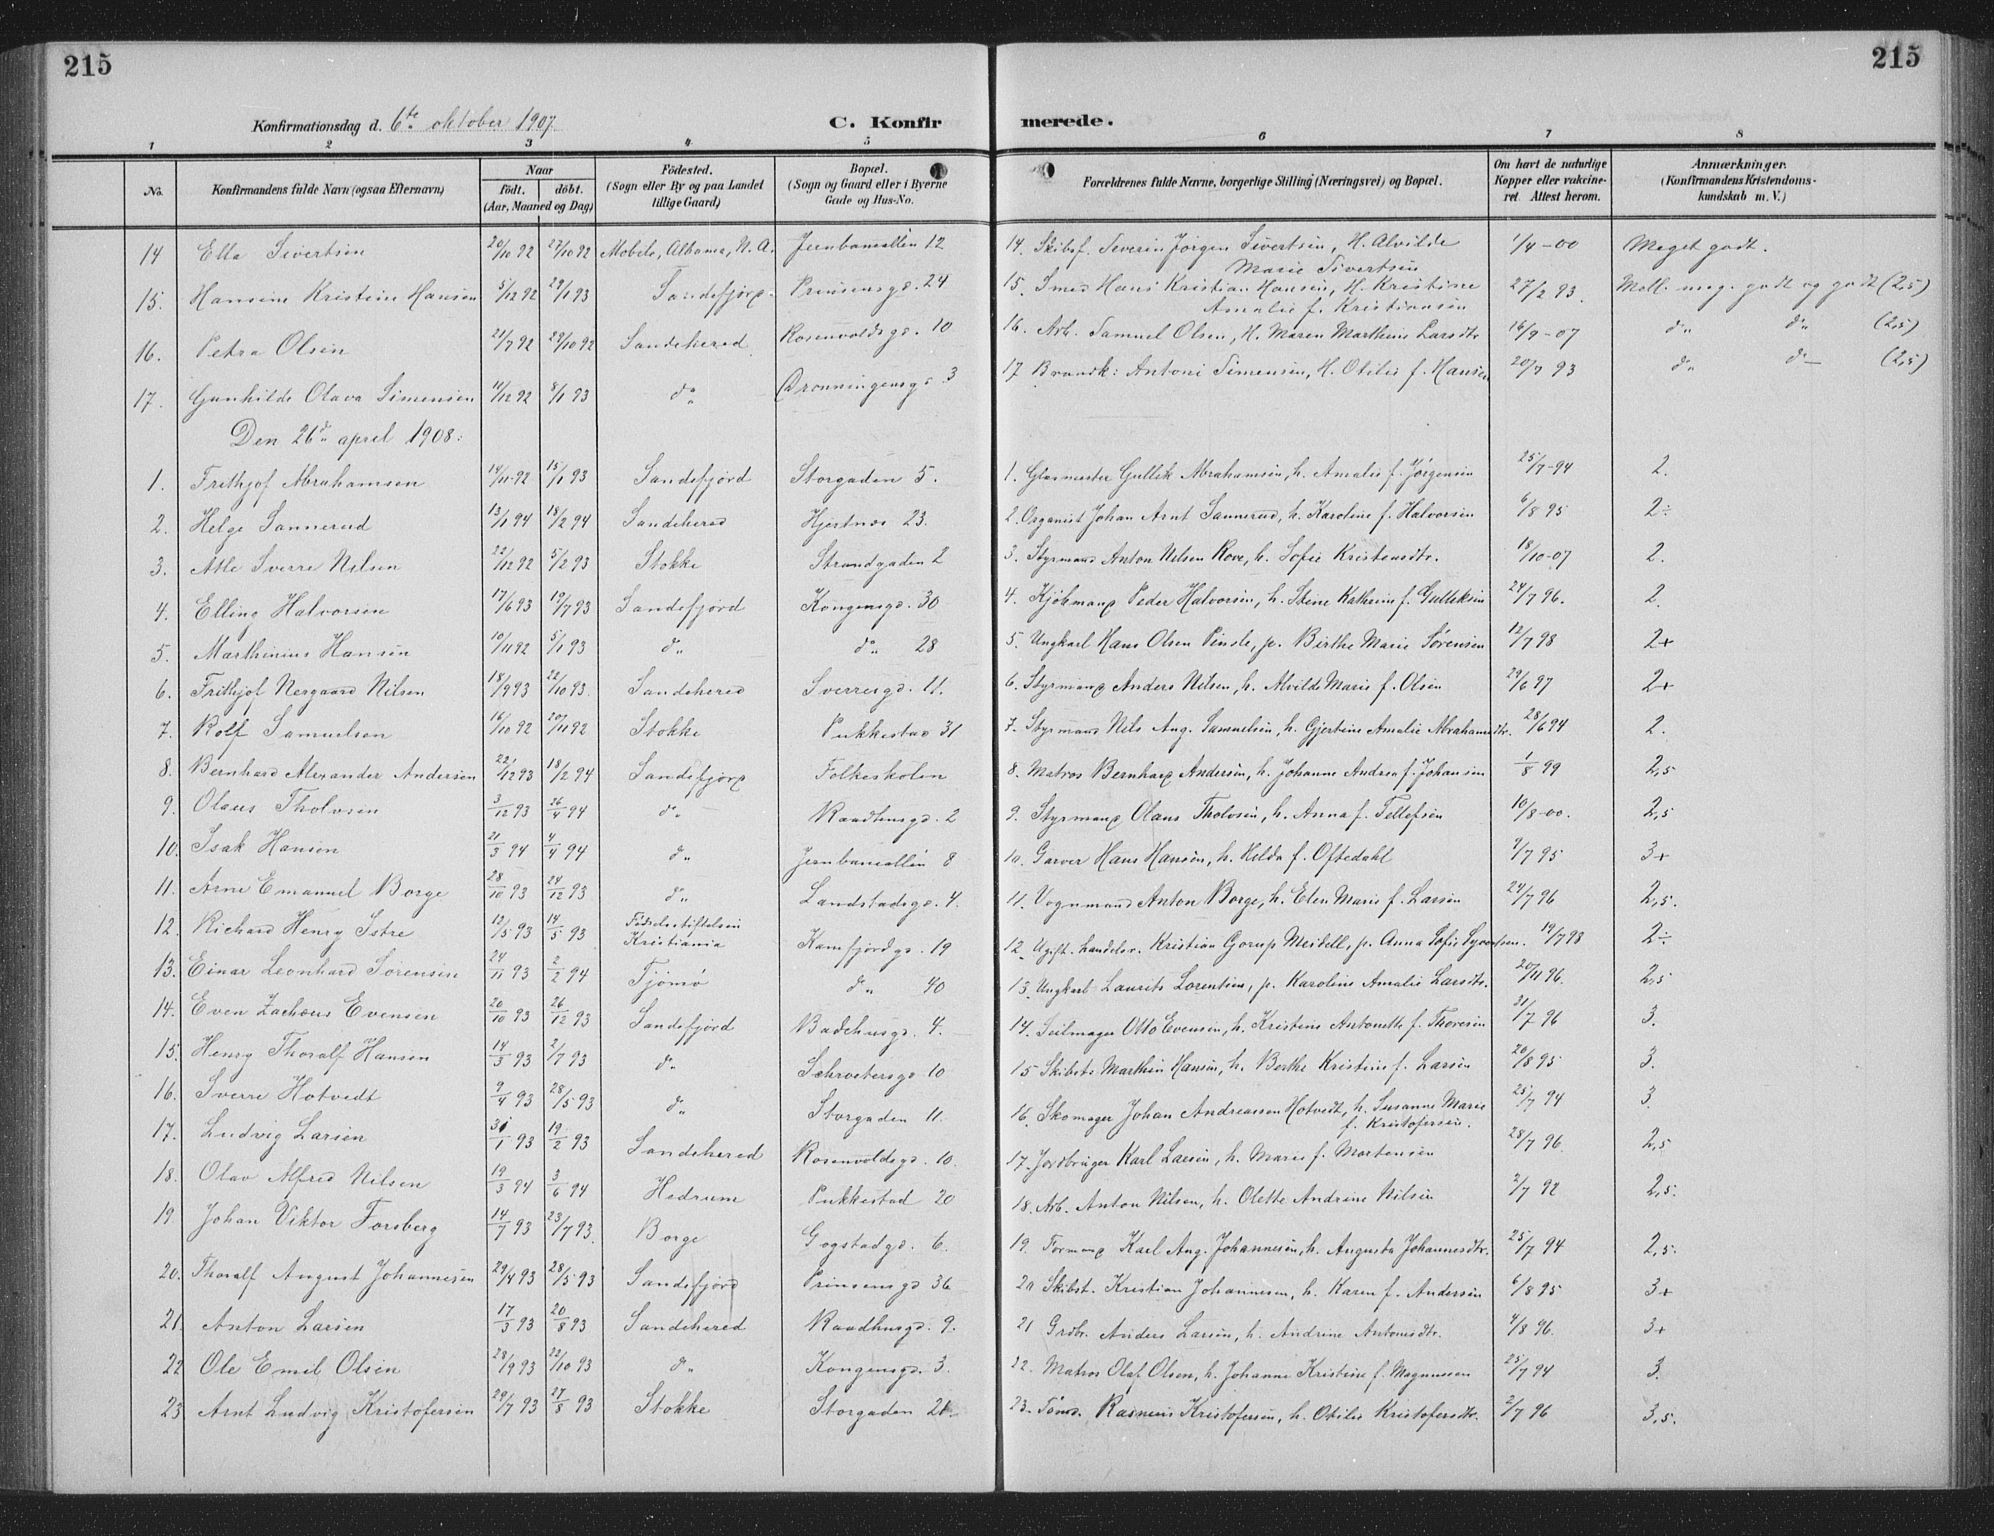 215
215
Konfirmationsdag d. 6te oktober 1907.
C. Konfir merede.
1 2 3 4 5 6 7 8
No. Konfirmandens fulde Navn (ogsaa Efternavn) Naar födt. döbt. (Aar, Maaned og Dag) Födested. (Sogn eller By og paa Landet tillige Gaard) Bopæl. (Sogn og Gaard eller i Byerne Gade og Hus-No. Forældrenes fulde Navne, borgerlige Stilling (Næringsvei) og Bopæl. Om havt de naturlige Kopper eller vakcineret Attest herom. Anmærkninger. (Konfirmandens Kristendomskundskab m. V.)
14 Ella Sivertsen 20/10 92 27/10 92 Mobile, Albama, N. A. Jernbanealléen 12 14. Skibsf. Severin Jørgen Sivertsen, H. Alvilde Marie Sivertsen 1/4-00 Meget godt.
15. Hansine Kristine Hansen 5/12 92 29/1 93 Sandefjord Prinsensgd. 24 15. Smed Hans Kristian Hansen, H. Kristine Amalie f. Kristiansen 27/2 93. Mell. meg. godt og godt (2,5)
16. Petra Olsen 21/7 92 29/10 92 Sandehered Rosenvoldsgd. 10 16. Arb. Samuel Olsen, H. Maren Marthine Larsdtr 16/9-07 do do (2,5)
17. Gunhilde Olava Simensen 11/12 92 8/1 93 do Dronningensgd. 3 17 Brandk: Antoni Simensen, H. Otilie f. Hansen 20/7 93 do do (2,5)
Den 26de april 1908:
1. Frithjof Abrahamsen 14/11-92 15/1 93 Sandefjord Storgaden 5. 1. Glasmester Gullik Abrahamsen, h. Amalie f. Jørgensen 25/7-94 2.
2. Helge Sannerud 13/1 94 18/2 94 Sandehered Hjertnes 23. 2. Organist Johan Arnt Sannerud, h. Karoline f. Halvorsen 6/8 95 2÷
3. Atle Sverre Nilsen 22/12 92 5/2 93 Stokke Strandgaden 2 3. Styrmand Anton Nilsen Rove, h. Sofie Kristensdtr. 18/10-07 2.
4. Elling Halvorsen 17/6 93 19/7 93 Sandefjord Kongensgd. 30 4. Kjökmand Peder Halvorsen, h. Stine Kathrine f. Gulliksen 24/7 96. 2.
5. Marthinius Hansen 10/11 92 5/1 93 do do 28 5. Ungkarl Hans Olsen Pinsle, p. Birthe Marie Sørensen 12/7 98 2+
6. Frithjof Nergaard Nilsen 18/9 93 22/10 93. Sandehered Sverresgd. 11. 6. Styrmand Anders Nilsen, h. Alvilde Marie f. Olsen 29/6 97 2+
7. Rolf Samuelsen 16/10 92 20/11 92 Stokke Pukkestad 31 7. Styrmand Nils Aug. Samuelsen, h. Gjertine Amalie Abrahamsdtr. 28/6 94 2.
8. Bernhard Alexander Andersen 22/12 93 18/2 94 Sandefjord Folkeskolen 8. Matros Bernhard Andersen, h. Johanne Andrea f. Johansen 1/8 99 2,5
9. Olaus Tholvsen 3/12 93 26/4 94 do Raadhusgd. 2 9. Styrmand Olaus Tholvsen, h. Anna f. Tellefsen 10/8-00. 2,5
10. Isak Hansen 21/3 94 4/4 94 do Jernbanealléen 8 10. Garver Hans Hansen, h. Helda f. Oftedahl 7/7 95 3+
11. Arne Emanuel Borge 28/10 93 24/12 93 do Landstadsgd. 4. 11. Vognmand Anton Borge, h. Elen Marie f. Larsen 24/7 96 2,5.
12. Richard Henry Istre 12/5 93 14/5 93 Födselsstiftelsen Kristiania Kamfjordgd. 19 12. Ugift handelsr. Kristian Gorup Meidell, p. Anna Sofie Syvertsen. 19/7 98 2÷
13. Einar Leonhard Sørensen 24/11 93 2/2 94 Tjømø do 40 13. Ungkarl Laurits Lorentsen, p. Karoline Amalie Larsdtr. 20/11 96. 2,5
14. Even Zachæus Evensen 20/10 93 26/12 93 Sandefjord Badehusgd. 4. 14. Seilmager Otto Evensen, h. Kristine Antonette f. Thoresen 31/7 96 3.
15. Henry Thoralf Hansen 14/3 93 2/7 93 do Schrøtersgd. 10 15 Skibst. Marthin Hansen, h. Berthe Kristine f. Larsen 20/8 95 3.
16. Sverre Hotvedt 9/4 93 28/5 93 do Storgaden 11. 16. Skomager Johan Andreassen Hotvedt, h. Susanne Marie f. Kristofersen. 25/7 94 3.
17. Ludvig Larsen 31/1 93 19/2 93 Sandehered Rosenvoldsgd. 10. 17. Jordbruger Karl Larsen, h. Marie f. Mortensen 28/7 96. 2,5
18. Olav Alfred Nilsen 19/3 94 3/6 94 Hedrum Pukkestad 20 18. Arb. Anton Nilsen, h. Olette Andrine Nilsen 2/7 92 2,5.
19. Johan Viktor Forsberg 14/7 93 23/7 93. Borge Gogstadgd. 6. 19. Formand Karl Aug. Johannesen, h. Augusta Johannesdtr. 25/7 94 2,5.
20. Thoralf August Johannesen 29/4 93 28/5 93 Sandefjord Prinsensgd 36 20 Skibst. Kristian Johannesen, h. Karen f. Andersen 6/8 95 3+
21. Anton Larsen 17/3 93 20/8 93 Sandehered Raadhusgd. 9. 21 Grdbr. Anders Larsen, h. Andrine Antonsdtr. 4/8 96. 3+
22 Ole Emil Olsen 28/9 93 22/10 93 do Kongensgd. 3. 22. Matros Olaf Olsen, h. Johanne Kristine f. Magnussen 25/7 94 3.
23 Arnt Ludvig Kristofersen 29/7 93 27/8 93 Stokke Storgaden 21. 23. Tømd. Rasmus Kristofersen, h. Otilie Kristofersdtr. 2/7 96 3,5.